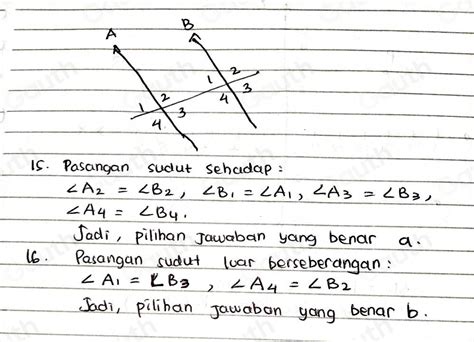 A
B
1 2
4 3
1 2
4 3
15. Pasangan sudut sehadap :
∠A2 = ∠B2, ∠B1 = ∠A1, ∠A3 = ∠B3,
∠A4 = ∠B4.
Jadi, pilihan jawaban yang benar a.
16. Pasangan sudut luar berseberangan :
∠A1 = ∠B3, ∠A4 = ∠B2
Jadi, pilihan jawaban yang benar b.